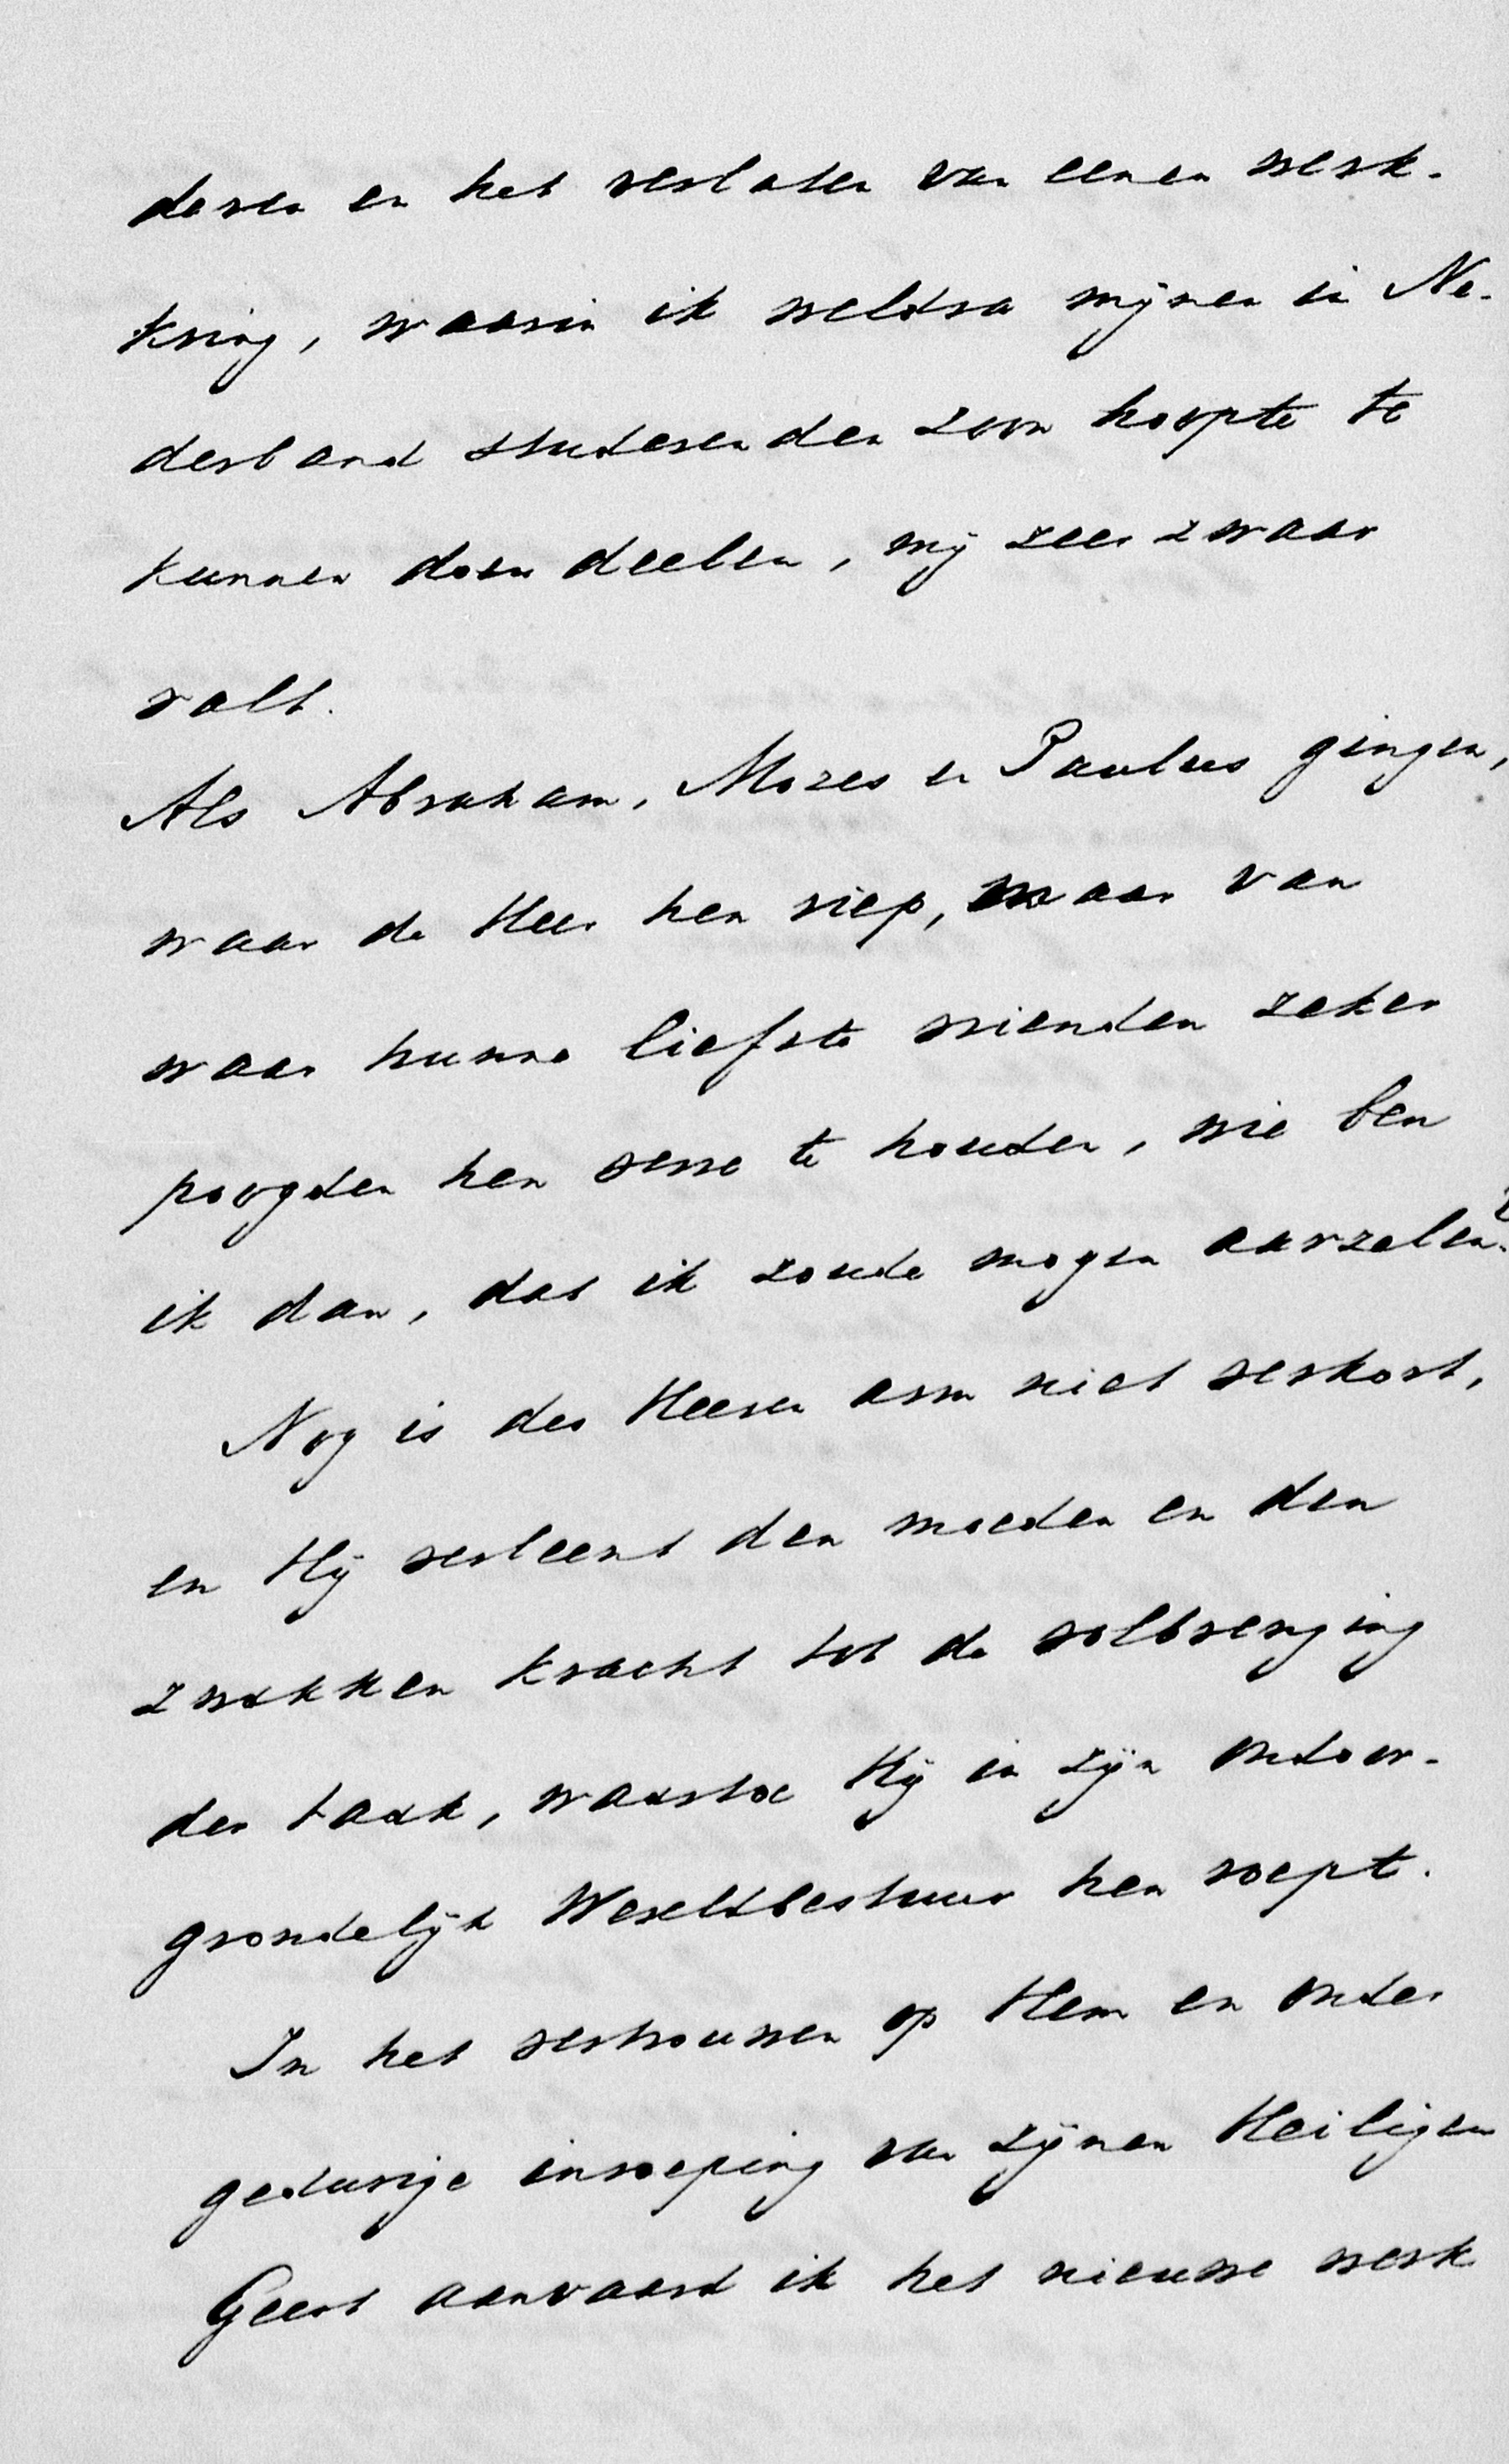 deren en het verlaten van eenen werk-
kring, waarin ik weldra mijnen in Ne-
derland studerenden zoon hoopte te
kunnen doen deelen, mij zeer zwaar
valt.
Als Abraham, Mozes en Paulus gingen,
waar de Heer hen riep, maar van
waar hunne liefste vrienden zeker
poogden hen verre te houden, wie ben
ik dan, dat ik zoude mogen aarzelen?
Nog is des Heeren arm niet verkort,
en Hij verleent den moeden en den
zwakken kracht tot de volbrenging
der taak, waartoe Hij in zijn ondoor-
grondelijk Wereldbestuur hen roept.
In het vertrouwen op Hem en onder
gedurige inroeping van zijnen Heiligen
Geest aanvaard ik het nieuwe werk